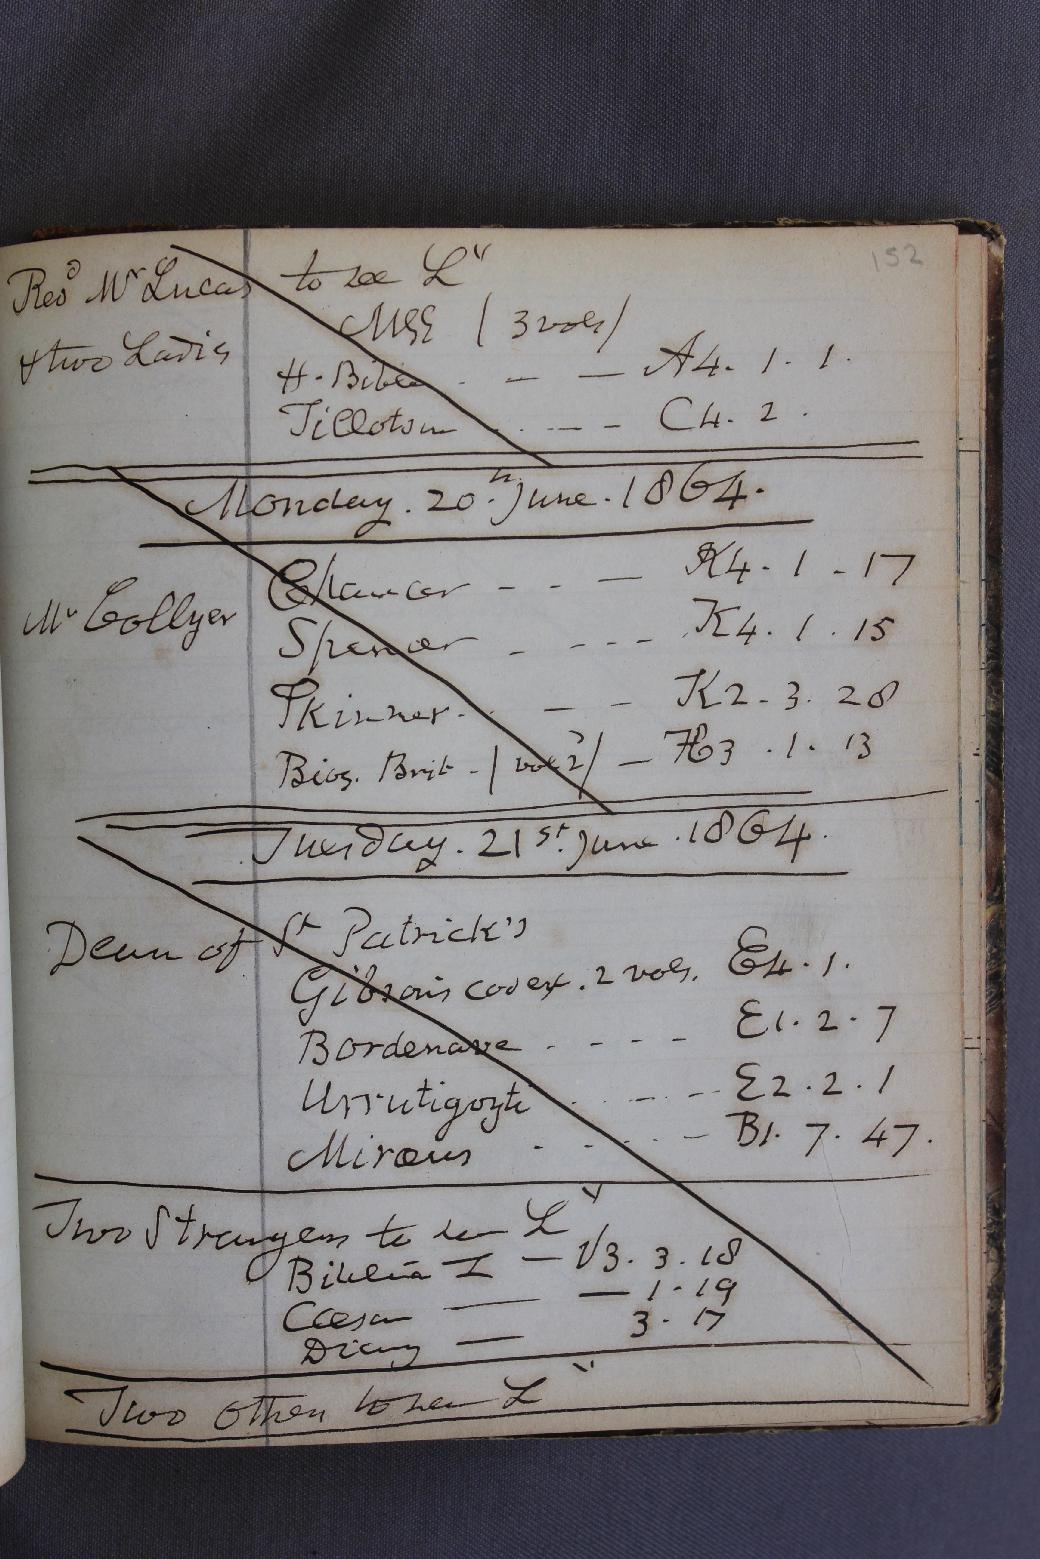 152
Revd Mr Lucas to see Ly
MSS (3 vols)
& two Ladies
H. Bible - - - A4. 1. 1.
Tillotson - - - - C4. 2.
Monday. 20th June. 1864.
Chaucer - - - K4. 1 - 17
Mr Collyer
Spencer - - - - K4. 1. 15
Skinner - - - K2 - 3. 28
Biog. Brit - (vol 2) - H3. 1. 13
Tuesday. 21st June. 1864.
Dean of St Patrick's
Gibson's codex. 2 vols. E4. 1.
Bordenave - - - - E1. 2. 7
Urrutigoyti - - - - E2. 2. 1
Miraeus - - - - B1. 7. 47.
Two Strangers to see Ly
Biblia I - V3. 3. 18
Caesar — — 1. 19
Diary — 3. 17
Two others to see Ly